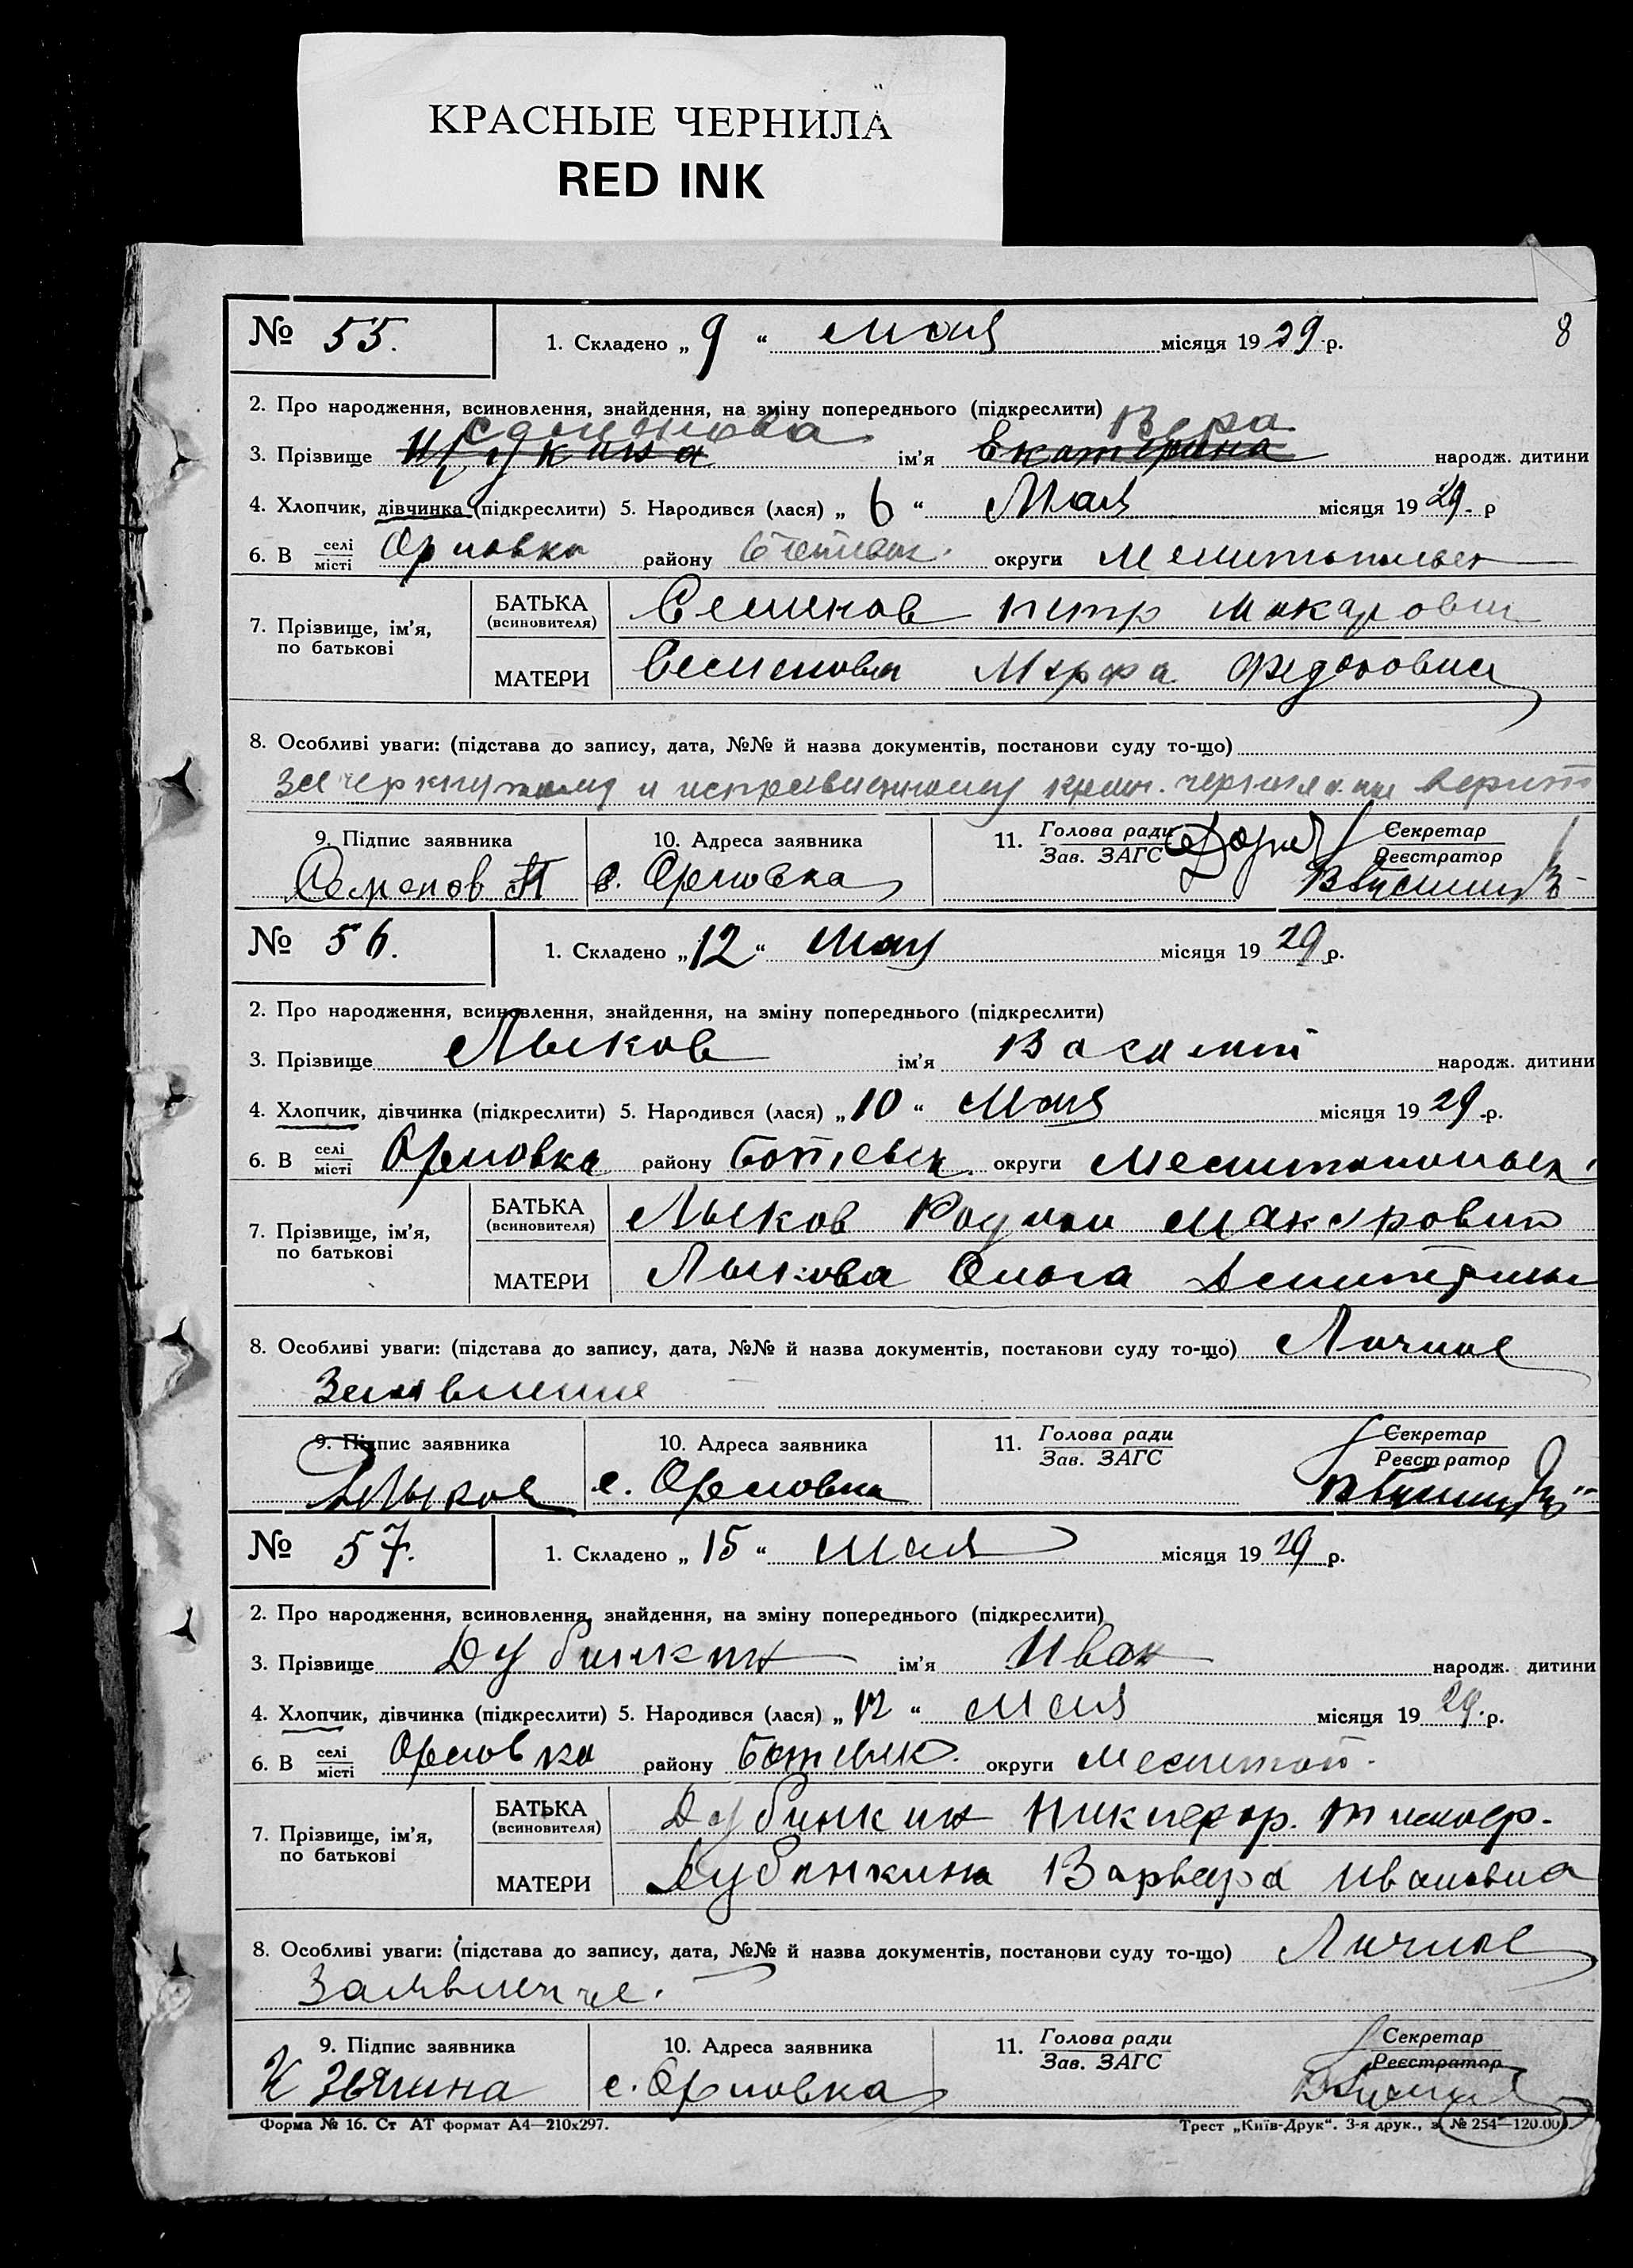 КРАСНЫЕ ЧЕРНИЛА
RED INK
8
№ 55. 1. Складено „ 9 “ мая місяця 1929 р.
2. Про народження, всиновлення, знайдення, на зміну попереднього (підкреслити)
Семенова Вера
3. Прізвище Щукина ім’я Екатерина народж. дитини
4. Хлопчик, дівчинка (підкреслити) 5. Народився (лася) „ 6 “ Мая місяця 1929. р
6. В селі/місті Орловка району Ботиевск. округи Мелитопольск
7. Прізвище, ім’я, по батькові
БАТЬКА (всиновителя) Семенов Петр Макарович
МАТЕРИ Семенова Марфа Федоровна
8. Особливі уваги: (підстава до запису, дата, №№ й назва документів, постанови суду то-що)
Зачеркнутому и исправленному красн. чернилами верить
9. Підпис заявника 10. Адреса заявника 11. Голова ради/Зав. ЗАГС Секретар/Реєстратор
Семенов П с. Орловка
№ 56. 1. Складено „12“ мая місяця 1929 р.
2. Про народження, всиновлення, знайдення, на зміну попереднього (підкреслити)
3. Прізвище Лыков ім’я Василий народж. дитини
4. Хлопчик, дівчинка (підкреслити) 5. Народився (лася) „10“ Мая місяця 1929 р.
6. В селі/місті Орловка району Ботиевск. округи Мелитопольск.
7. Прізвище, ім’я, по батькові
БАТЬКА (всиновителя) Лыков Родион Макарович
МАТЕРИ Лыкова Ольга
8. Особливі уваги: (підстава до запису, дата, №№ й назва документів, постанови суду то-що) Личное
Заявление
9. Підпис заявника 10. Адреса заявника 11. Голова ради/Зав. ЗАГС Секретар/Реєстратор
Лыков с. Орловка
№ 57. 1. Складено „ 15 “ мая місяця 1929 р.
2. Про народження, всиновлення, знайдення, на зміну попереднього (підкреслити)
3. Прізвище Дубинкин ім’я Иван народж. дитини
4. Хлопчик, дівчинка (підкреслити) 5. Народився (лася) „12“ Мая місяця 1929. р.
6. В селі/місті Орловка району Ботиевск. округи Мелитоп.
7. Прізвище, ім’я, по батькові
БАТЬКА (всиновителя) Дубинкин Никифор. Тимофер.
МАТЕРИ Дубинкина Варвара Ивановна
8. Особливі уваги: (підстава до запису, дата, №№ й назва документів, постанови суду то-що) Личное
Заявление.
9. Підпис заявника 10. Адреса заявника 11. Голова ради/Зав. ЗАГС Секретар/Реєстратор
К Зягина с. Орловка
Форма № 16. Ст АТ формат А4—210х297. Трест „Київ-Друк“. 3-я друк., з. № 254—120.000